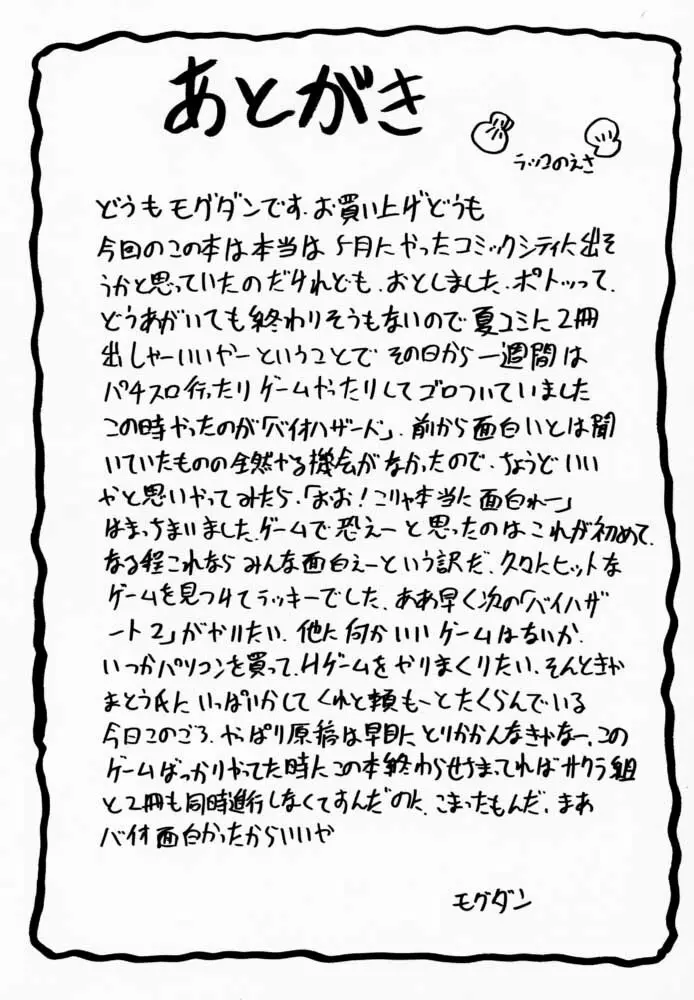 あとがき
ラッコのえさ
どうもモグダンです。お買い上げどうも
今回のこの本は本当は5月にやったコミックシティに出そ
うかと思っていたのだけれども、おとしました、ポトッって、
どうあがいても終わりそうもないので夏コミに2冊
出しゃーいいやーということでその日から一週間は
パチスロ行ったりゲームやったりしてゴロついていました
この時やったのが「バイオハザード」、前から面白いとは聞
いていたものの全然やる機会がなかったので、ちょうどいい
やと思いやってみたら、「おお!こりゃ本当に面白れー」
はまっちまいました。ゲームで恐えーと思ったのはこれが初めて、
なる程これならみんな面白えーという訳だ、久々にヒットな
ゲームを見つけてラッキーでした、ああ早く次の「バイハザ
ート2」がやりたい、他に何かいいゲームはないか、
いつかパソコンを買って、Hゲームをやりまくりたい、そんときゃ
まとう氏にいっぱいかしてくれと頼もーとたくらんでいる
今日このごろ、やっぱり原稿は早目にとりかかんなきゃなー、この
ゲームばっかりやってた時にこの本終わらせちまってればサクラ組
と2冊も同時進行しなくてすんだのに、こまったもんだ、まあ
バイオ面白かったからいいや
モグダン